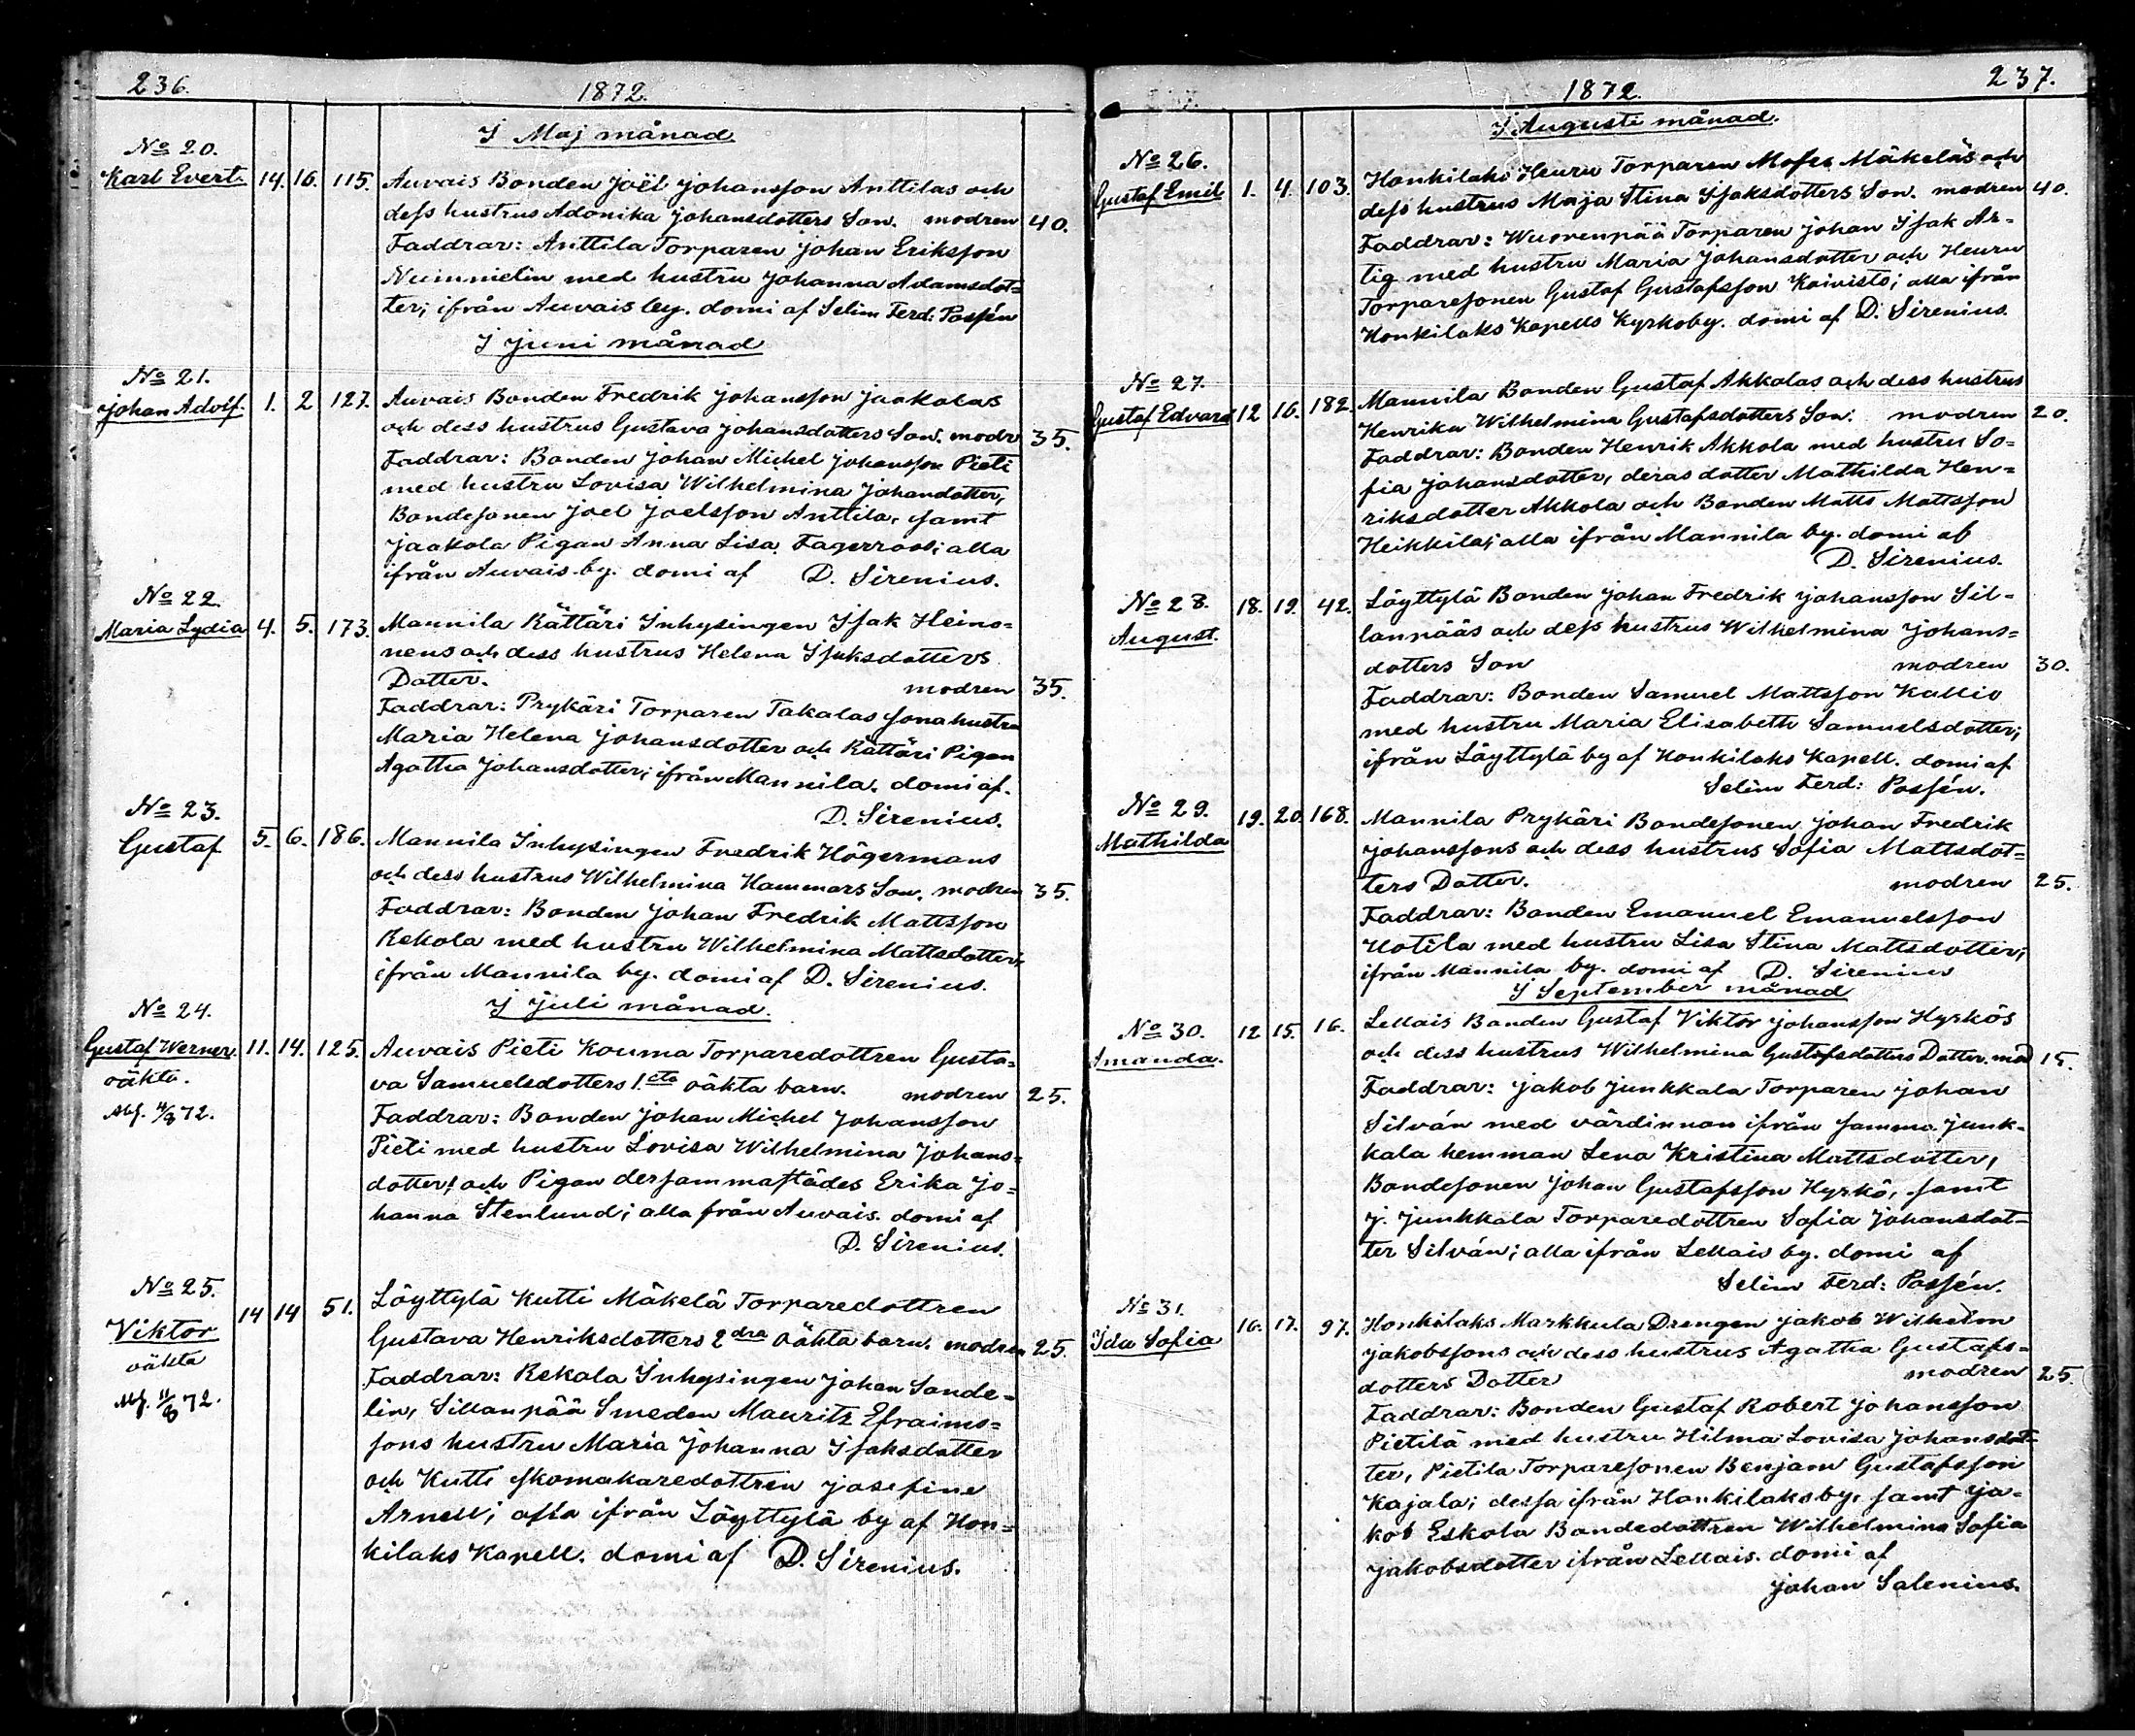 236.
1872.
I Maj månad
No 20.
Karl Evert. 14. 16. 115. Auvais Bonden Joël Johansson Anttilas och
dess hustrus Adonika Johansdotters Son. modren 40.
Faddrar: Anttila Torparen Johan Eriksson
Nummelin med hustru Johanna Adamsdot=
ter; ifrån Auvais by. domi af Selim Ferd: Passén
I Juni månad
No 21.
Johan Adolf. 1. 2 127. Auvais Bonden Fredrik Johansson Jaakolas
och dess hustrus Gustava Johansdotters Son. modr 35.
Faddrar: Bonden Johan Michel Johansson Pieti
med hustru Lovisa Wilhelmina Johansdotter,
Bondesonen Joel Joelsson Anttila, samt
Jaakola Pigan Anna Lisa Fagerroos; alla
ifrån Auvais by. domi af D. Sirenius.
No 22.
Maria Lydia 4. 5. 173. Mannila Rättäri Inhysingen Isak Heino=
nens och dess hustrus Helena Isaksdotters
Datter. modren 35.
Faddrar: Prykäri Torparen Takalas sonahustru
Maria Helena Johansdotter och Rättäri Pigan
Agatha Johansdotter; ifrån Mannila. domi af.
D. Sirenius.
No 23.
Gustaf 5. 6. 186. Mannila Inhysingen Fredrik Högermans
och dess hustrus Wilhelmina Hammars Son. modren 35.
Faddrar: Bonden Johan Fredrik Mattsson
Rekola med hustru Wilhelmina Mattsdotter;
ifrån Mannila by. domi af D. Sirenius.
I Juli månad.
No 24.
Gustaf Werner. 11. 14. 125. Auvais Pieti Kouma Torparedottren Gusta=
oäkta.
va Samuelsdotters 1.sta oäkta barn. modren 25.
Abf. 11/8 72.
Faddrar: Bonden Johan Michel Johansson
Pieti med hustru Lovisa Wilhelmina Johans=
dotter; och Pigan dersammastädes Erika Jo=
hanna Stenlund; alla från Auvais. domi af
D. Sirenius.
No 25.
Viktor 14 14 51. Löyttylä Kutti Mäkelä Torparedottren
oäkta
Gustava Henriksdotters 2dra oäkta barn. modren 25.
Abf. 11/8 72.
Faddrar: Rekola Inhysingen Johan Sande=
lin, Sillanpää Smeden Mauritz Efraims=
sons hustru Maria Johanna Isaksdotter
och Kutti skomakaredottren Josefine
Arnell; alla ifrån Löyttylä by af Hon=
kilaks Kapell. domi af D. Sirenius.
237.
1872.
I Augusti månad.
No 26.
Gustaf Emil 1. 4. 103. Honkilaks Heuru Torparen Moses Mäkeläs och
dess hustrus Maja Stina Isaksdotters Son. modren 40.
Faddrar: Wuorenpää Torparen Johan Isak Ar=
tig med hustru Maria Johansdotter och Heuru
Torparesonen Gustaf Gustafsson Koivisto; alla ifrån
Honkilaks Kapells Kyrkoby. domi af D. Sirenius.
No 27.
Gustaf Edvard 12 16. 182. Mannila Bonden Gustaf Akkolas och dess hustrus
Henrika Wilhelmina Gustafsdotters Son. modren 20.
Faddrar: Bonden Henrik Akkola med hustru So=
fia Johansdotter, deras dotter Mathilda Hen=
riksdotter Akkola och Bonden Matts Mattsson
Heikkilä; alla ifrån Mannila by. domi af
D. Sirenius.
No 28.
August. 18. 19. 42. Löyttylä Bonden Johan Fredrik Johansson Sil=
lanpääs och dess hustrus Wilhelmina Johans=
dotters Son modren 30.
Faddrar: Bonden Samuel Mattsson Kallio
med hustru Maria Elisabeth Samuelsdotter;
ifrån Löyttylä by af Honkilaks Kapell. domi af
Selim Ferd: Passén.
No 29.
Mathilda 19. 20. 168. Mannila Prykäri Bondesonen Johan Fredrik
Johanssons och dess hustrus Sofia Mattsdot=
ters Dotter. modren 25.
Faddrar: Bonden Emanuel Emanuelsson
Uotila med hustru Lisa Stina Mattsdotter;
ifrån Mannila by. domi af D. Sirenius
I September månad
No 30.
Amanda. 12 15. 16. Lellais Bonden Gustaf Viktor Johansson Hyrkös
och dess hustrus Wilhelmina Gustafsdotters Dotter. mod 15.
Faddrar: Jakob Junkkala Torparen Johan
Silván med värdinnan ifrån samma Junk=
kala hemman Lena Kristina Mattsdotter,
Bondesonen Johan Gustafsson Hyrkö, samt
J. Junkkala Torparedottren Sofia Johansdot=
ter Silván; alla ifrån Lellais by. domi af
Selim Ferd: Passén.
No 31.
Ida Sofia 16. 17. 97. Honkilaks Markkula Drengen Jakob Wilhelm
Jakobssons och dess hustrus Agatha Gustafs=
dotters Dotter modren 25.
Faddrar: Bonden Gustaf Robert Johansson
Pietilä med hustru Hilma Lovisa Johansdot=
ter, Pietila Torparesonen Benjam Gustafsson
Kajala; dessa ifrån Honkilaks by, samt Ja=
kob Eskola Bondedottren Wilhelmina Sofia
Jakobsdotter ifrån Lellais. domi af
Johan Salenius.